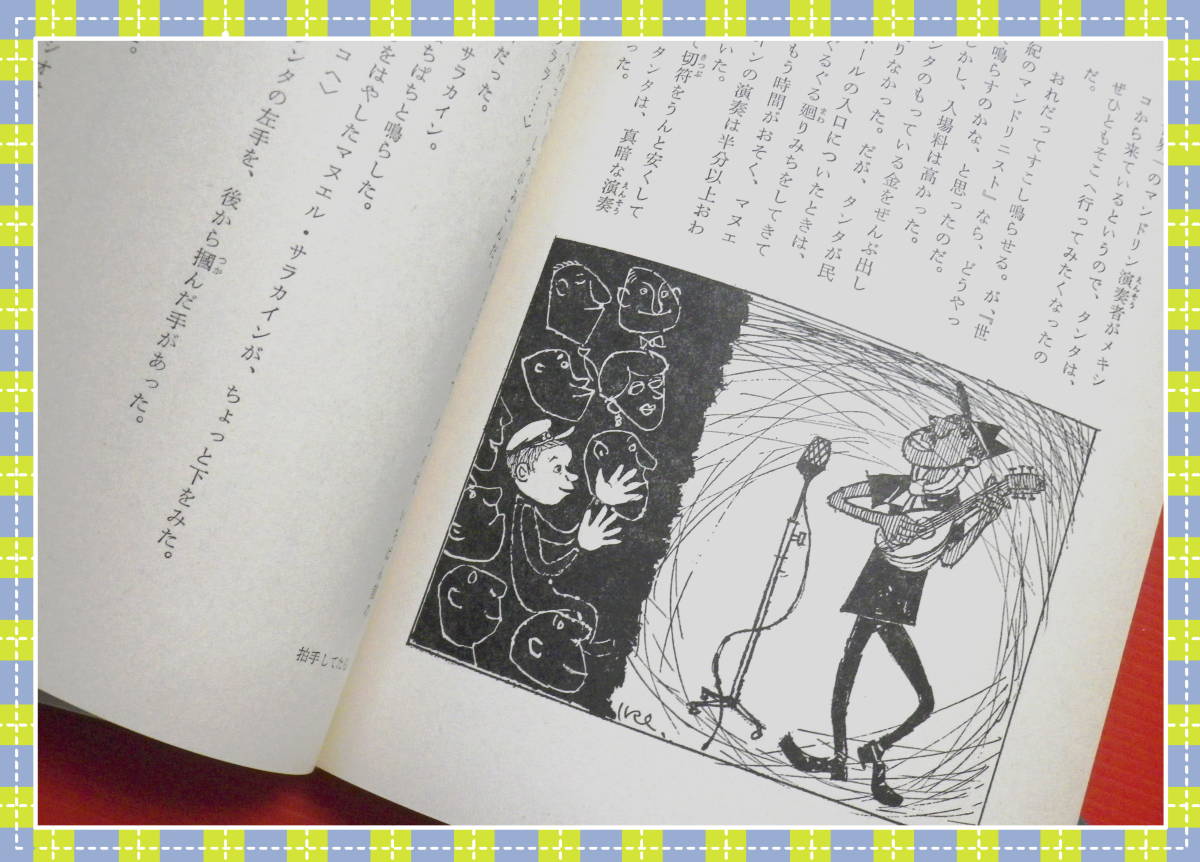 一のマンドリン演奏者がメキシ
コから来ているというので、タンタは、
ぜひともそこへ行ってみたくなったの
だ。
おれだってすこし鳴らせる。が、『世
紀のマンドリニスト』なら、どうやっ
鳴らすのかな、と思ったのだ。
かし、入場料は高かった。
ンタのもっている金をぜんぶ出し
りなかった。だが、タンタが民
ールの入口についたときは、
ぐるぐる廻りみちをしてきて
もう時間がおそく、マヌエ
インの演奏は半分以上おわ
いた。
て切符をうんと安くして
タンタは、真暗な演奏
った。
だった。
サラカイン。
ちぱちと鳴らした。
をはやしたマヌエル・サラカインが、ちょっと下をみた。
コへ〉
ンタの左手を、後から摑んだ手があった。
拍手してたら